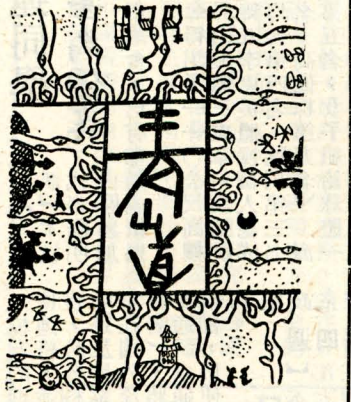 青山道